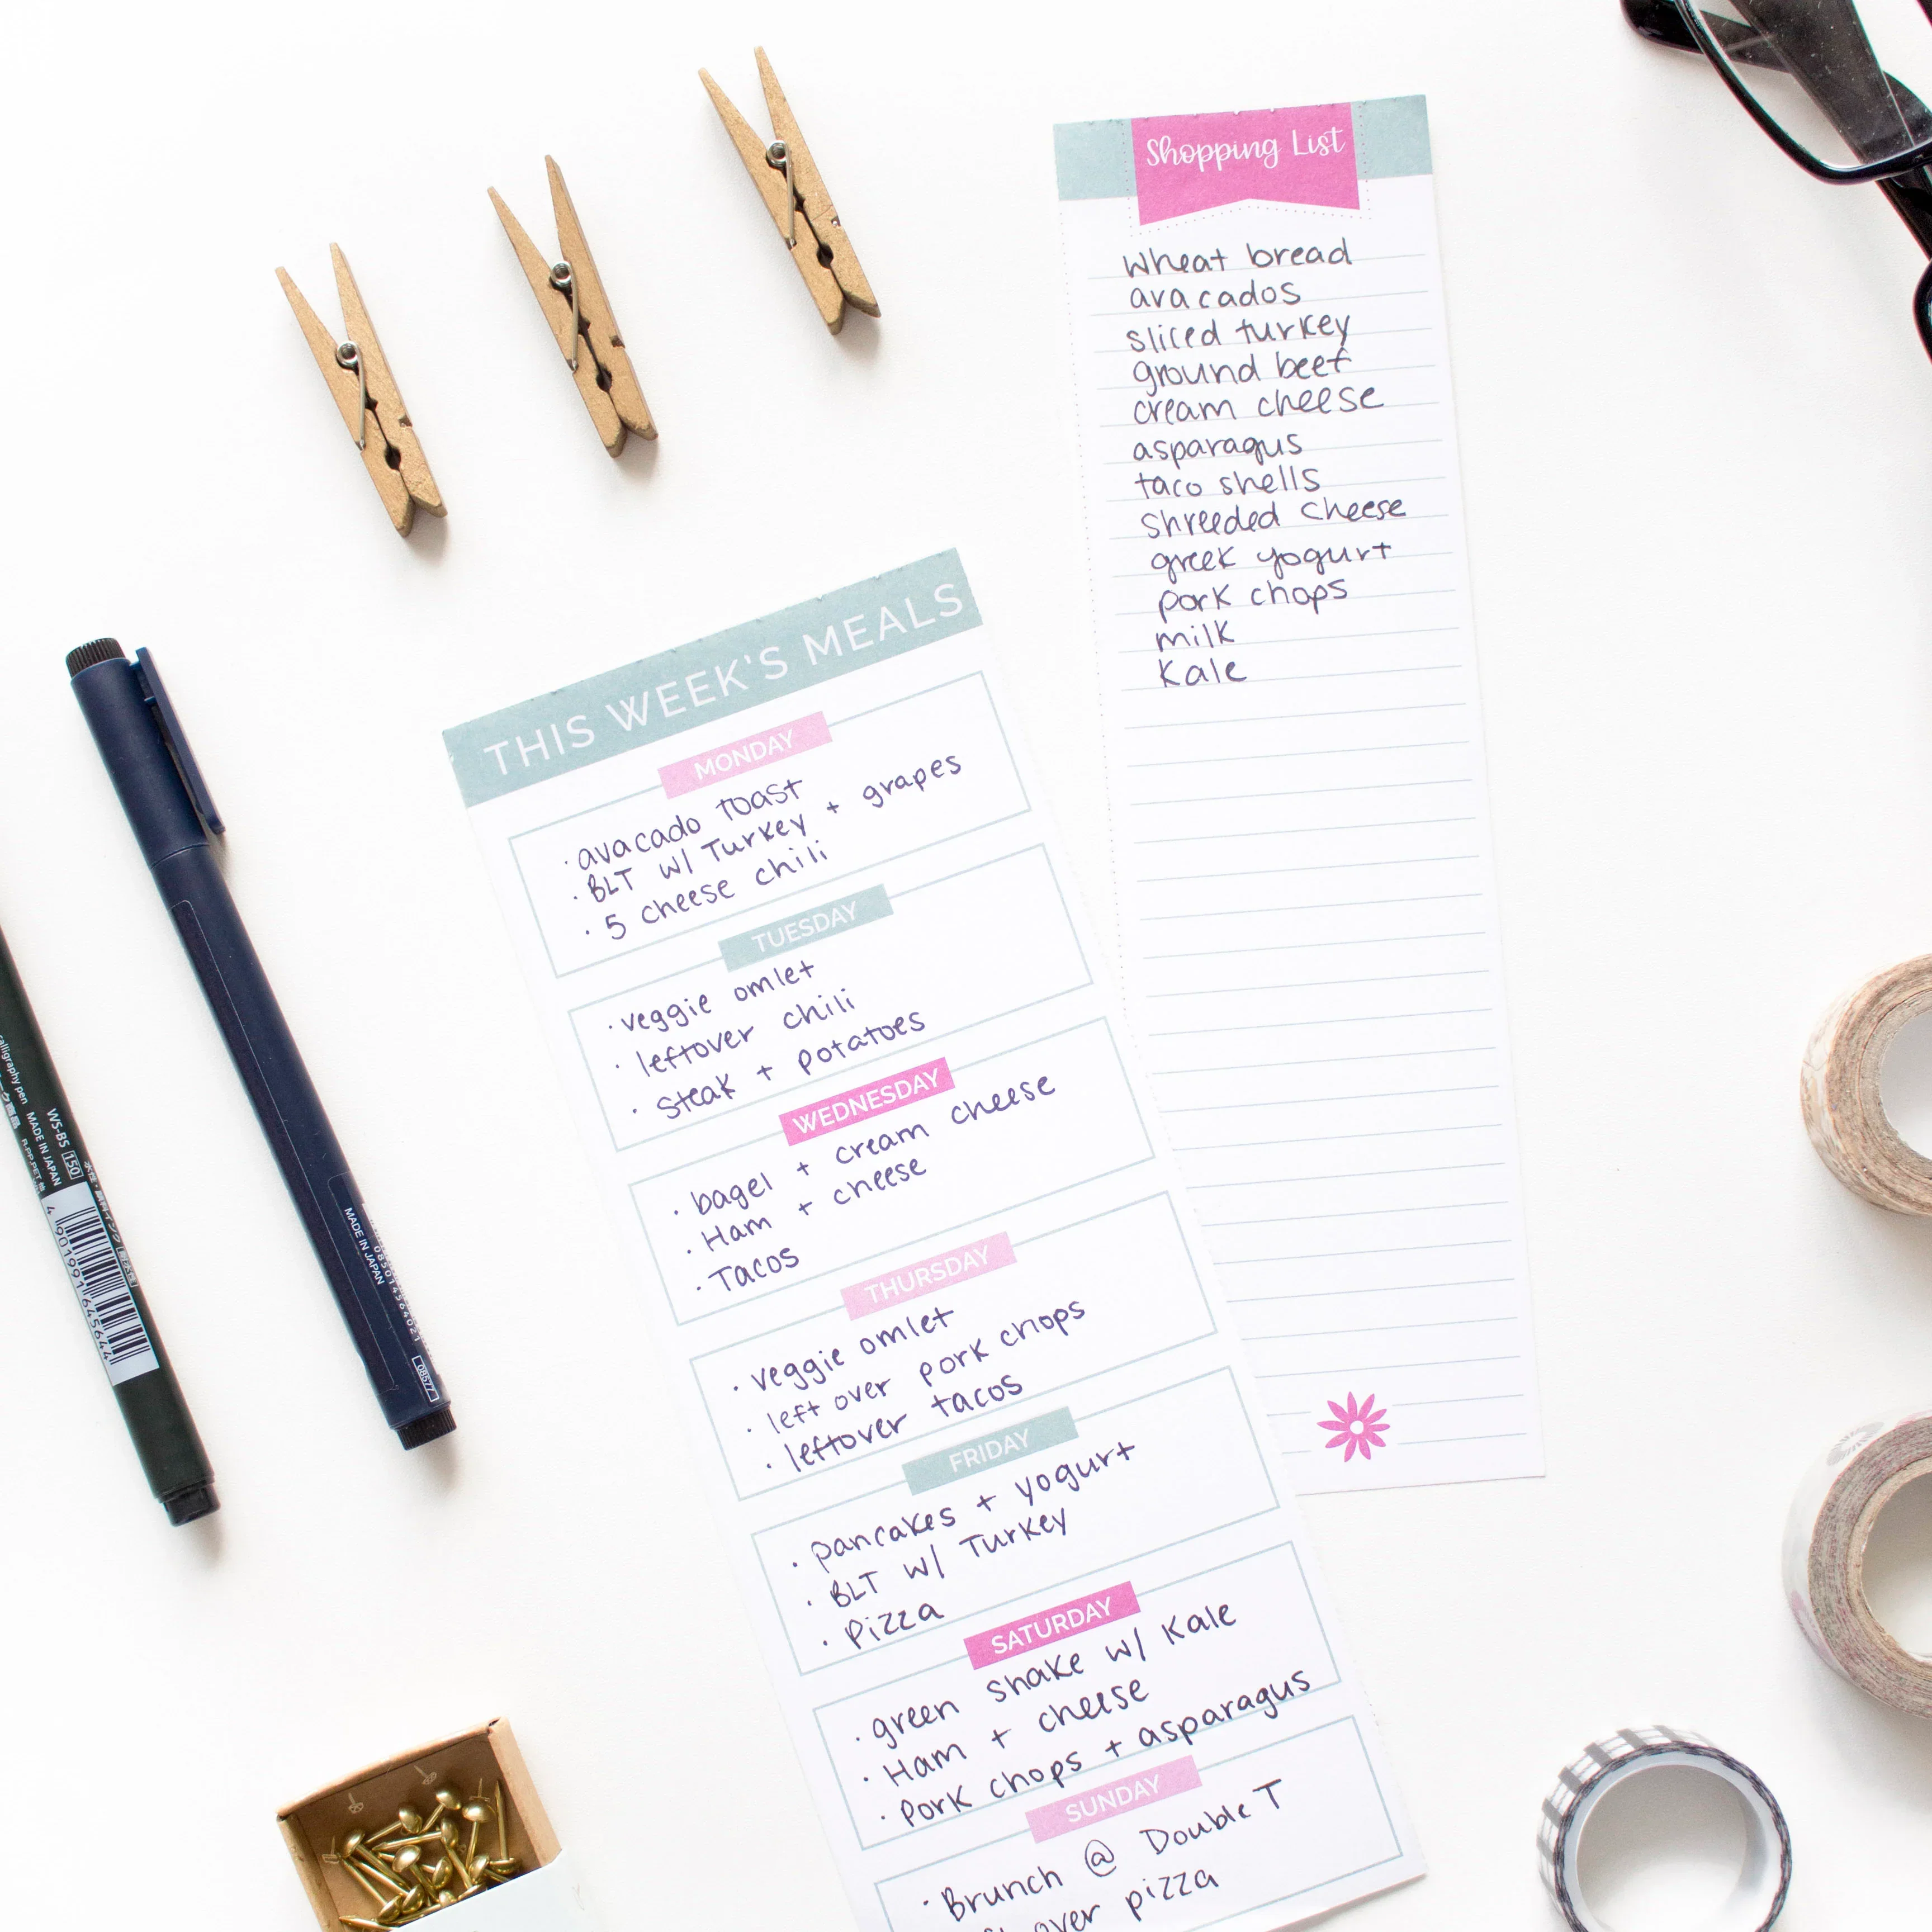 Shopping List
wheat bread
avacados
sliced turkey
ground beef
cream cheese
asparagus
taco shells
shreeded cheese
greek yogurt
pork chops
milk
Kale
THIS WEEK'S MEALS
MONDAY
· avacado toast
· BLT w/ Turkey + grapes
· 5 cheese chili
TUESDAY
· veggie omlet
· leftover chili
· steak + potatoes
WEDNESDAY
· bagel + cream cheese
· Ham + cheese
· Tacos
THURSDAY
· veggie omlet
· left over pork chops
· leftover tacos
FRIDAY
· pancakes + yogurt
· BLT w/ Turkey
· Pizza
SATURDAY
· green shake w/ Kale
· Ham + cheese
· pork chops + asparagus
SUNDAY
· Brunch @ Double T
over pizza
calligraphy pen MADE IN JAPAN
WS-BS 150
4 901991 645644
MADE IN JAPAN
08577